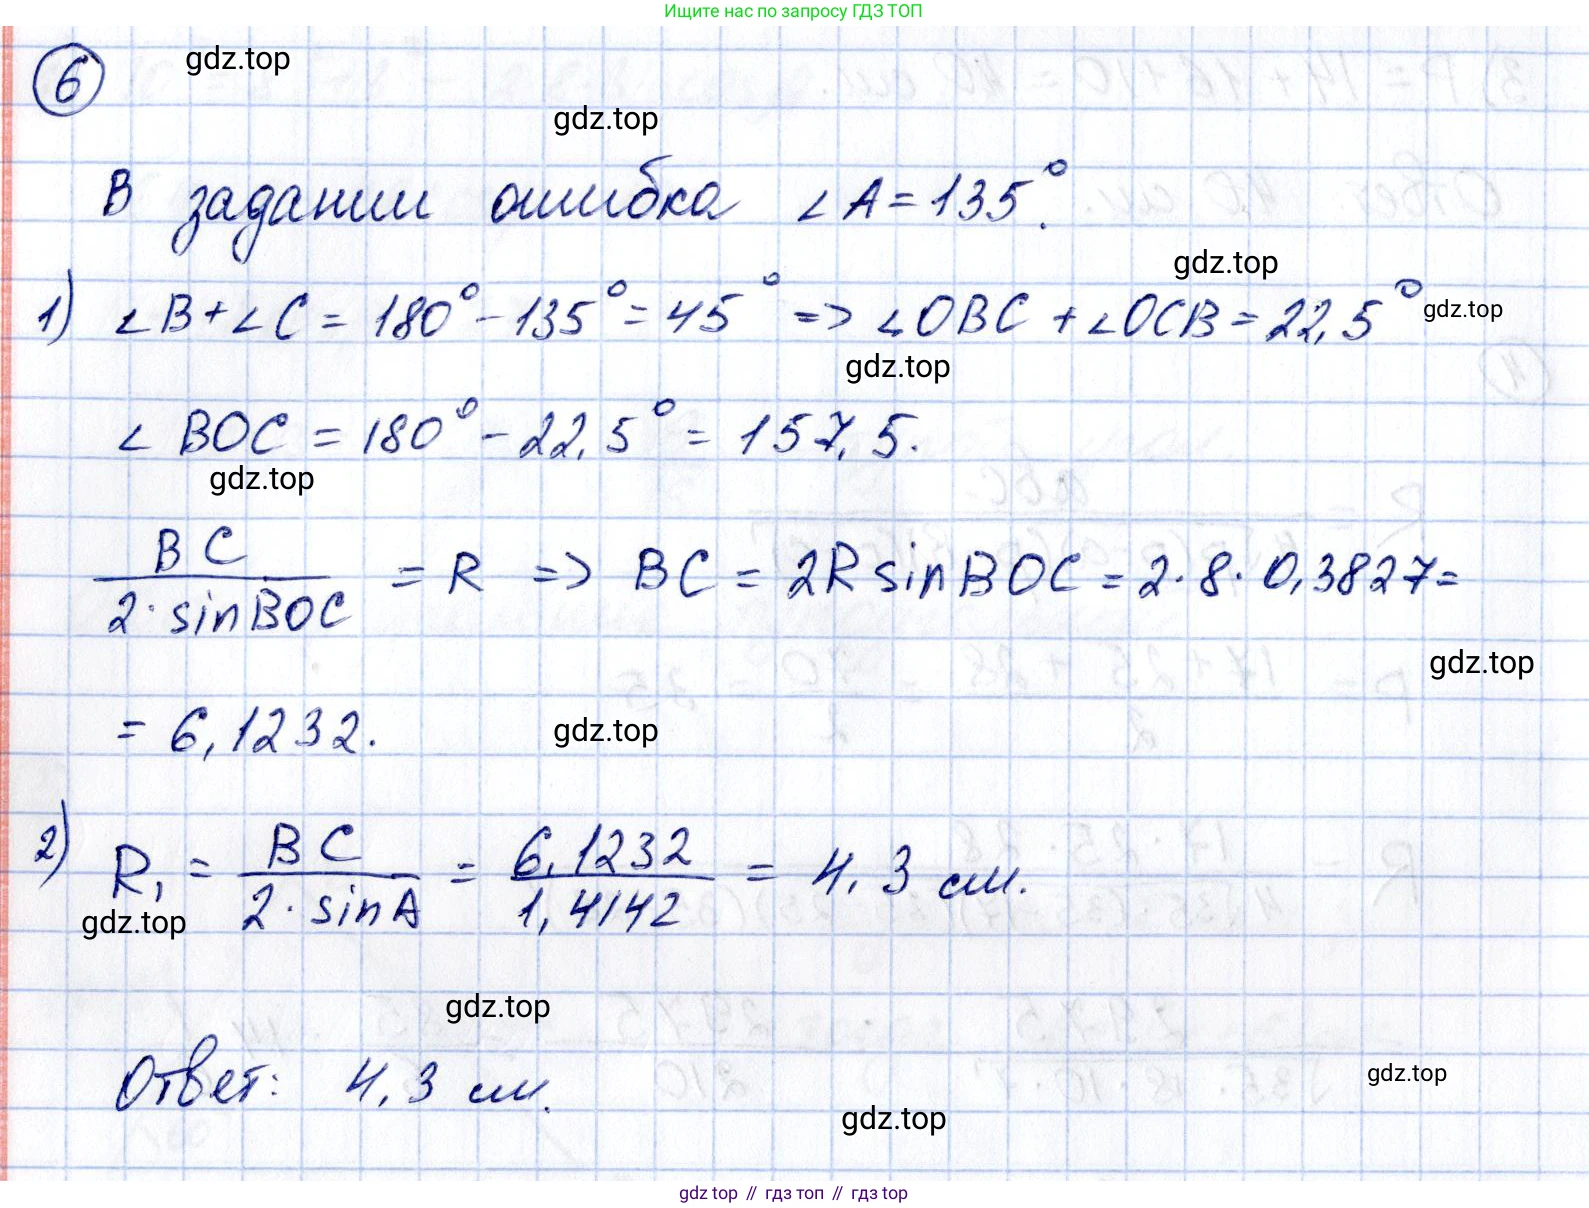 Ищите нас по запросу ГДЗ ТОП
6 gdz.top
gdz.top
В задании ошибка ∠A = 135°.
gdz.top
1) ∠B + ∠C = 180° - 135° = 45° => ∠OBC + ∠OCB = 22,5° gdz.top
gdz.top
∠BOC = 180° - 22,5° = 157,5.
gdz.top
BC / 2·sinBOC = R => BC = 2R sinBOC = 2·8·0,3827 =
gdz.top
= 6,1232. gdz.top
2) R₁ = BC / 2·sinA = 6,1232 / 1,4142 = 4,3 см.
gdz.top
gdz.top
Ответ: 4,3 см.
gdz.top
gdz.top
gdz top // гдз топ // гдз top